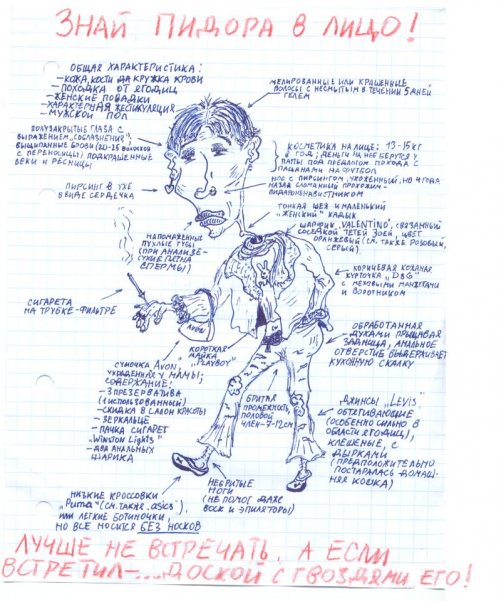 ЗНАЙ ПИДОРА В ЛИЦО!
ОБЩАЯ ХАРАКТЕРИСТИКА:
– КОЖА, КОСТИ ДА КРУЖКА КРОВИ
– ПОХОДКА ОТ ЯГОДИЦ
– ЖЕНСКИЕ ПОВАДКИ
– ХАРАКТЕРНАЯ ЖЕСТИКУЛЯЦИЯ
– МУЖСКОЙ ПОЛ
МЕЛИРОВАННЫЕ ИЛИ КРАШЕННЫЕ
ВОЛОСЫ С НЕСМЫТЫМ В ТЕЧЕНИИ 5 ДНЕЙ
ГЕЛЕМ
ПОЛУЗАКРЫТЫЕ ГЛАЗА С
ВЫРАЖЕНИЕМ „СОБЛАЗНЕНИЯ",
ВЫЩИПАННЫЕ БРОВИ (20-25 ВОЛОСКОВ
С ПЕРЕНОСИЦЫ) ПОДКРАШЕННЫЕ
ВЕКИ И РЕСНИЦЫ
КОСМЕТИКА НА ЛИЦЕ: 13-15 КГ
В ГОД; ДЕНЬГИ НА НЕЕ БЕРУТСЯ У
ПАПЫ ПОД ПРЕДЛОГОМ ПОХОДА С
ПАЦАНАМИ НА ФУТБОЛ
НОС С ПИРСИНГОМ, УХОЖЕННЫЙ, НО 4 ГОДА
НАЗАД СЛОМАННЫЙ ПРОХОЖИМ-
ПИДАРОНЕНАВИСТНИКОМ
ПИРСИНГ В УХЕ
В ВИДЕ СЕРДЕЧКА
ТОНКАЯ ШЕЯ И МАЛЕНЬКИЙ
„ЖЕНСКИЙ" КАДЫК
ШАРФИК „VALENTINO", СВЯЗАННЫЙ
СОСЕДКОЙ ТЕТЕЙ ЗОЕЙ, ЦВЕТ
ОРАНЖЕВЫЙ (СМ. ТАКЖЕ РОЗОВЫЙ,
СЕРЫЙ)
НАПОМАЖЕННЫЕ
ПУХЛЫЕ ГУБЫ
(ПРИ АНАЛИЗЕ –
СУХИЕ ПЯТНА
СПЕРМЫ)
КОРИЧНЕВАЯ КОЖАНАЯ
КУРТОЧКА „D&G"
С МЕХОВЫМИ МАНЖЕТАМИ
И ВОРОТНИКОМ
СИГАРЕТА
НА ТРУБКЕ-ФИЛЬТРЕ
AVON
КОРОТКАЯ
МАЙКА
„PLAYBOY"
ОБРАБОТАННАЯ
ДУХАМИ ПРЫЩАВАЯ
ЗАДНИЦА, АНАЛЬНОЕ
ОТВЕРСТИЕ ВЫДЕРЖИВАЕТ
КУХОННУЮ СКАЛКУ
СУМОЧКА „AVON",
УКРАДЕННАЯ У МАМЫ;
СОДЕРЖАНИЕ:
– 3 ПРЕЗЕРВАТИВА
(1 ИСПОЛЬЗОВАННЫЙ)
– СКИДКА В САЛОН КРАСОТЫ
– ЗЕРКАЛЬЦЕ
– ПАЧКА СИГАРЕТ
„WINSTON LIGHTS"
– ДВА АНАЛЬНЫХ
ШАРИКА
БРИТАЯ
ПРОМЕЖНОСТЬ,
ПОЛОВОЙ
ЧЛЕН – 7-12 СМ
ДЖИНСЫ „LEVIS"
ОБТЯГИВАЮЩИЕ
(ОСОБЕННО СИЛЬНО В
ОБЛАСТИ ЯГОДИЦ),
КЛЕШЕНЫЕ, С
ДЫРКАМИ
(ПРЕДПОЛОЖИТЕЛЬНО
ПОСТАРАЛАСЬ ДОМАШ-
НЯЯ КОШКА)
НИЗКИЕ КРОССОВКИ
„Puma" (СМ. ТАКЖЕ „asics"),
ИЛИ ЛЕГКИЕ БОТИНОЧКИ,
НО ВСЕ НОСИТСЯ БЕЗ НОСКОВ
НЕБРИТЫЕ
НОГИ
(НЕ ПОМОГ ДАЖЕ
ВОСК И ЭПИЛЯТОРЫ)
ЛУЧШЕ НЕ ВСТРЕЧАТЬ, А ЕСЛИ
ВСТРЕТИЛ – ... ДОСКОЙ С ГВОЗДЯМИ ЕГО!